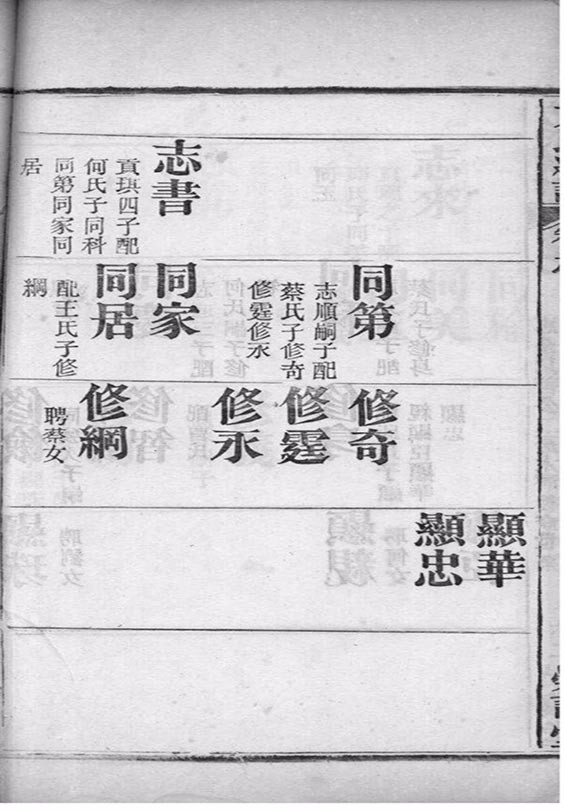 志書
貢琪四子配
何氏子同科
同第同家同
居
同第
志順嗣子配
蔡氏子修奇
修霆修永
同家
同居
配王氏子修
綱
修奇
修霆
修永
修綱
聘蔡女
顯華
顯忠